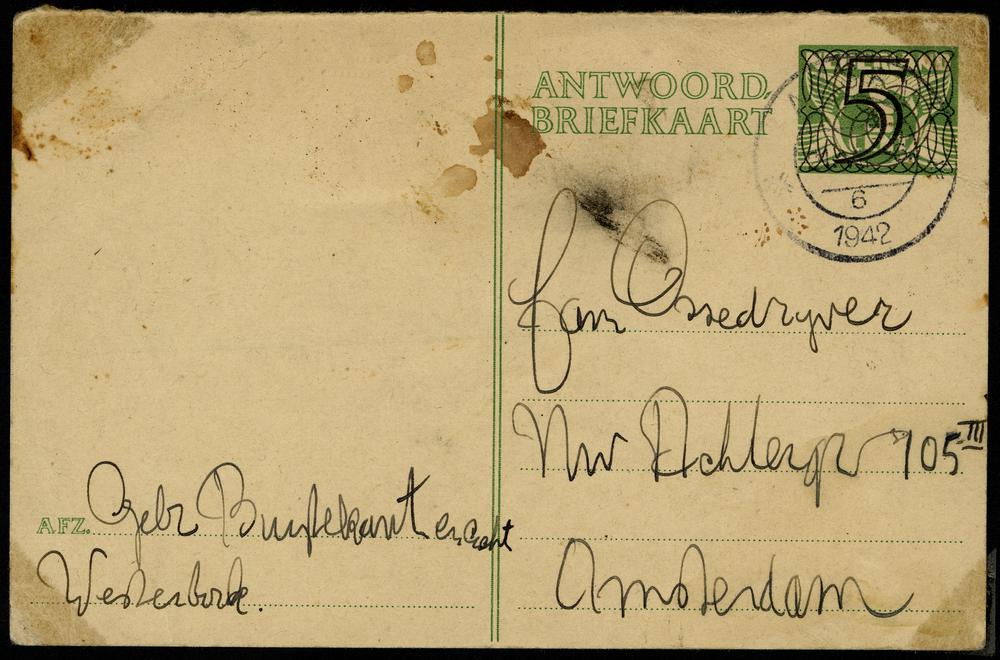 ANTWOORD-
BRIEFKAART
5
6
1942
fam Ossedryver
Nw Achtergr 105 III
Amsterdam
AFZ. Gebr Buitekant en Echt
Westerbork.